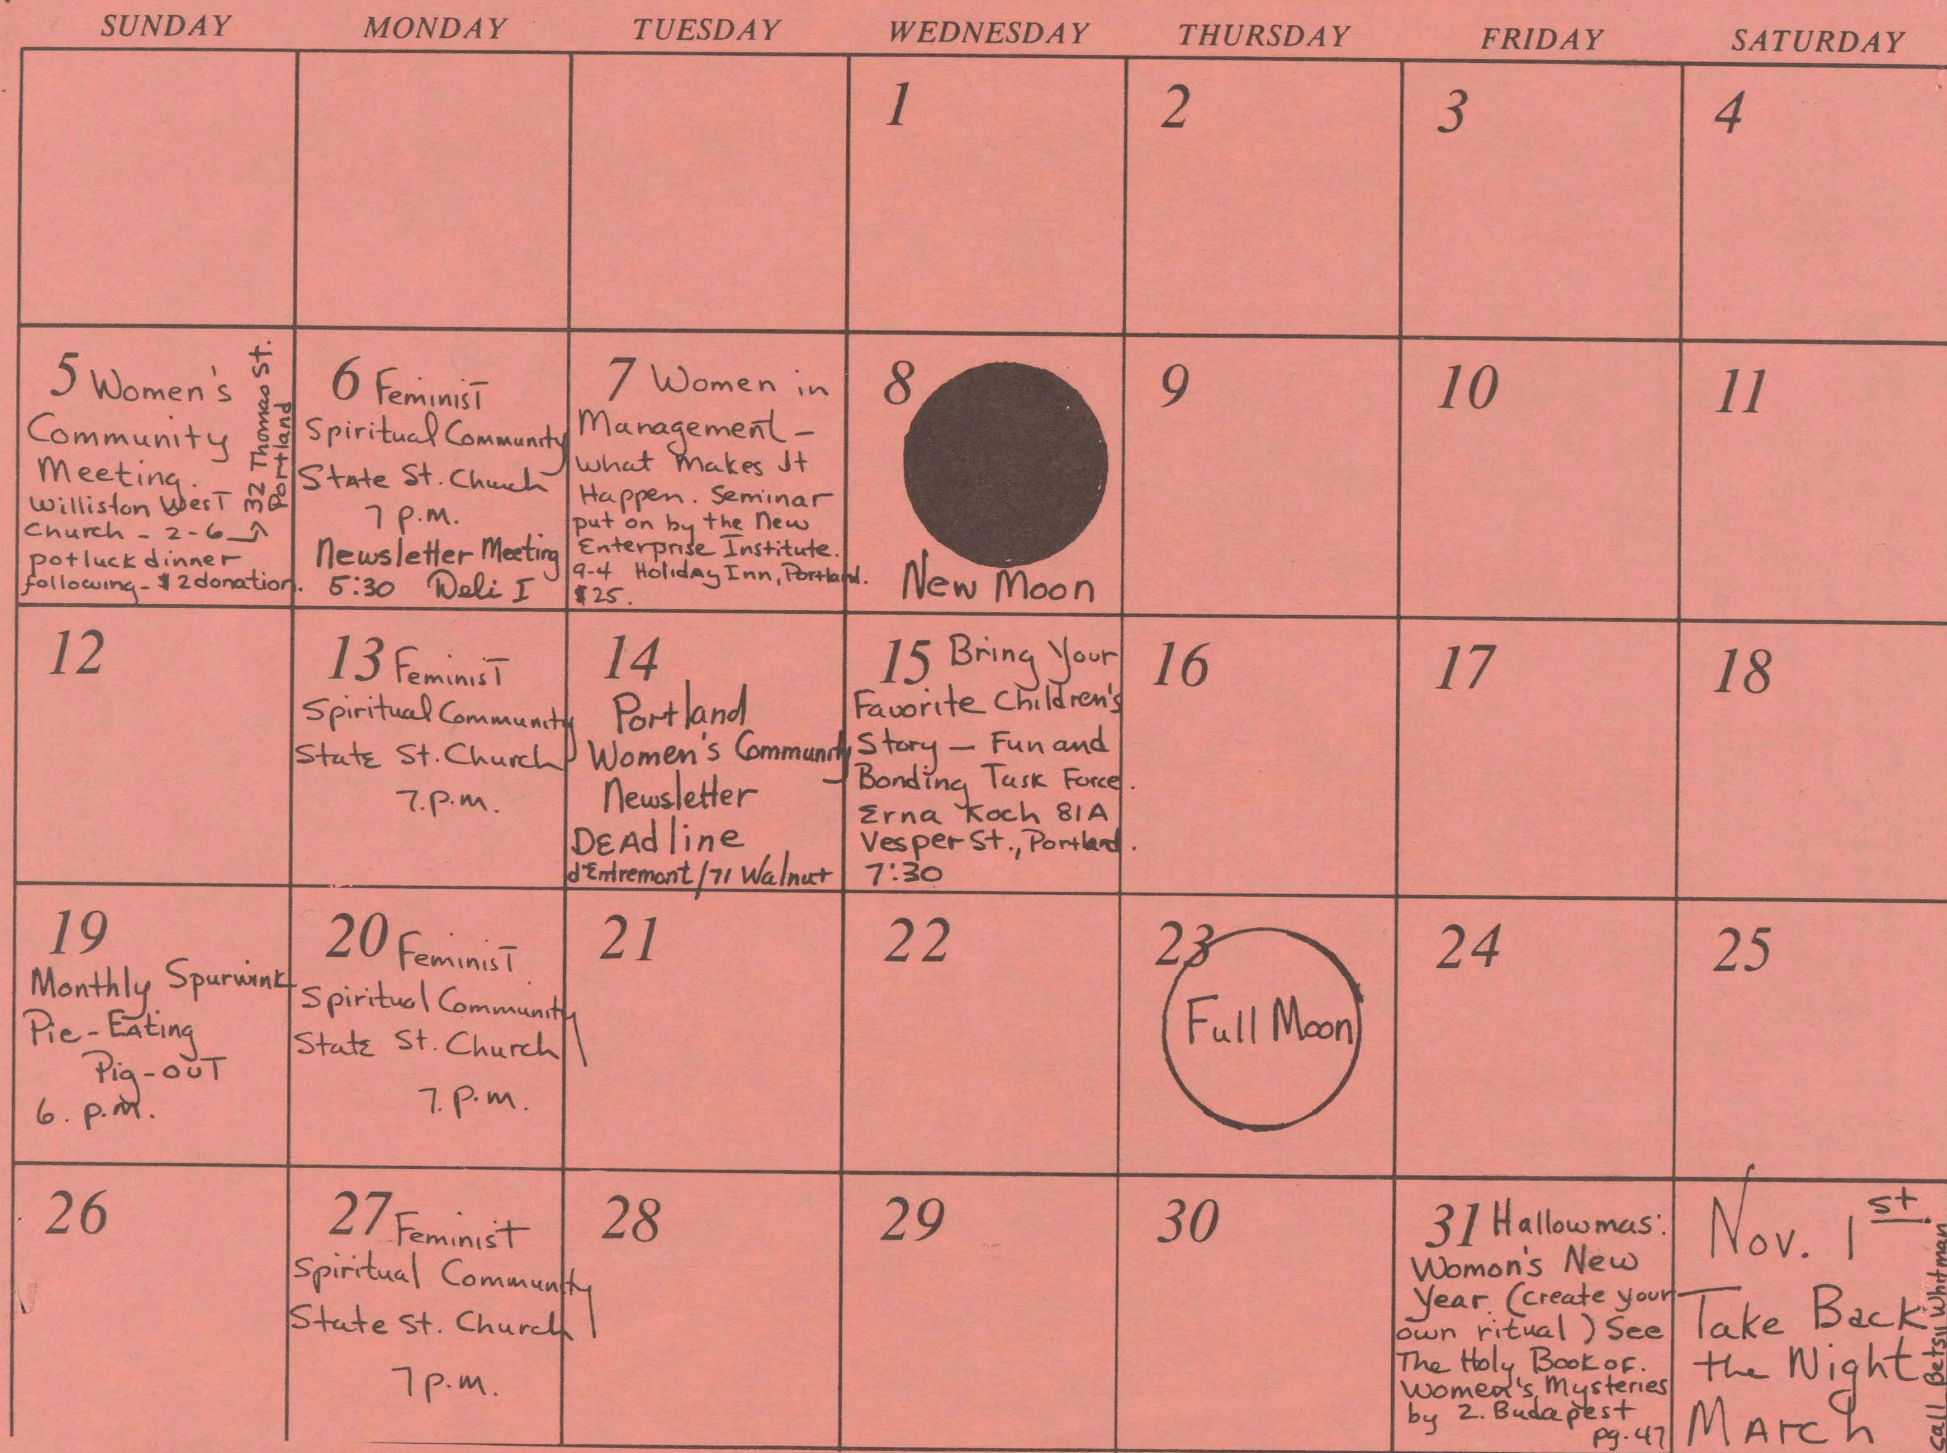 SUNDAY MONDAY TUESDAY WEDNESDAY THURSDAY FRIDAY SATURDAY
1
2
3
4
5 Women's
Community
Meeting.
Williston West
Church - 2-6
potluck dinner
following - $2 donation.
32 Thomas St.
Portland
6 Feminist
Spiritual Community
State St. Church
7 p.m.
Newsletter Meeting
5:30 Deli I
7 Women in
Management -
what Makes It
Happen. Seminar
put on by the New
Enterprise Institute.
9-4 Holiday Inn, Portland.
$25.
8
New Moon
9
10
11
12
13 Feminist
Spiritual Community
State St. Church
7.p.m.
14
Portland
Women's Community
Newsletter
DEAdline
d'Entremont/71 Walnut
15 Bring Your
Favorite Children's
Story — Fun and
Bonding Task Force.
Erna Koch 81A
Vesper St., Portland.
7:30
16
17
18
19
Monthly Spurwink
Pie-Eating
Pig-out
6. p.m.
20 Feminist
Spiritual Community
State St. Church
7. p.m.
21
22
23
Full Moon
24
25
26
27 Feminist
Spiritual Community
State St. Church
7 p.m.
28
29
30
31 Hallowmas:
Womon's New
Year. (create your
own ritual) See
The Holy Book of.
Women's Mysteries
by Z. Budapest
pg. 47
Nov. 1st.
Take Back
the Night
MArch
call Betsy Whitman